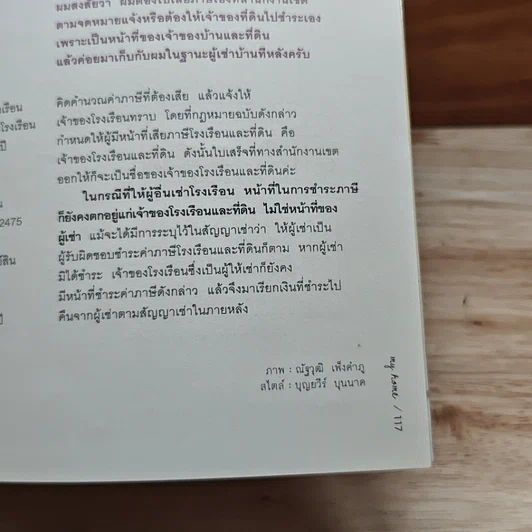 ผมสงสัยว่า
ตามจดหมายแจ้งหรือต้องให้เจ้าของที่ดินไปชำระเอง
เพราะเป็นหน้าที่ของเจ้าของบ้านและที่ดิน
แล้วค่อยมาเก็บกับผมในฐานะผู้เช่าบ้านทีหลังครับ
คิดคำนวณค่าภาษีที่ต้องเสีย แล้วแจ้งให้
เจ้าของโรงเรือนทราบ โดยที่กฎหมายฉบับดังกล่าว
กำหนดให้ผู้มีหน้าที่เสียภาษีโรงเรือนและที่ดิน คือ
เจ้าของโรงเรือนและที่ดิน ดังนั้นใบเสร็จที่ทางสำนักงานเขต
ออกให้ก็จะเป็นชื่อของเจ้าของโรงเรือนและที่ดินค่ะ
ในกรณีที่ให้ผู้อื่นเช่าโรงเรือน หน้าที่ในการชำระภาษี
ก็ยังคงตกอยู่แก่เจ้าของโรงเรือนและที่ดิน ไม่ใช่หน้าที่ของ
ผู้เช่า แม้จะได้มีการระบุไว้ในสัญญาเช่าว่า ให้ผู้เช่าเป็น
ผู้รับผิดชอบชำระค่าภาษีโรงเรือนและที่ดินก็ตาม หากผู้เช่า
มิได้ชำระ เจ้าของโรงเรือนซึ่งเป็นผู้ให้เช่าก็ยังคง
มีหน้าที่ชำระค่าภาษีดังกล่าว แล้วจึงมาเรียกเงินที่ชำระไป
คืนจากผู้เช่าตามสัญญาเช่าในภายหลัง
เรือน
โรงเรือน
ปี
น
2475
ปี
ภาพ : ณัฐวุฒิ เพ็งคำภู
สไตล์ : บุญยวีร์ บุนนาค
my home / 117